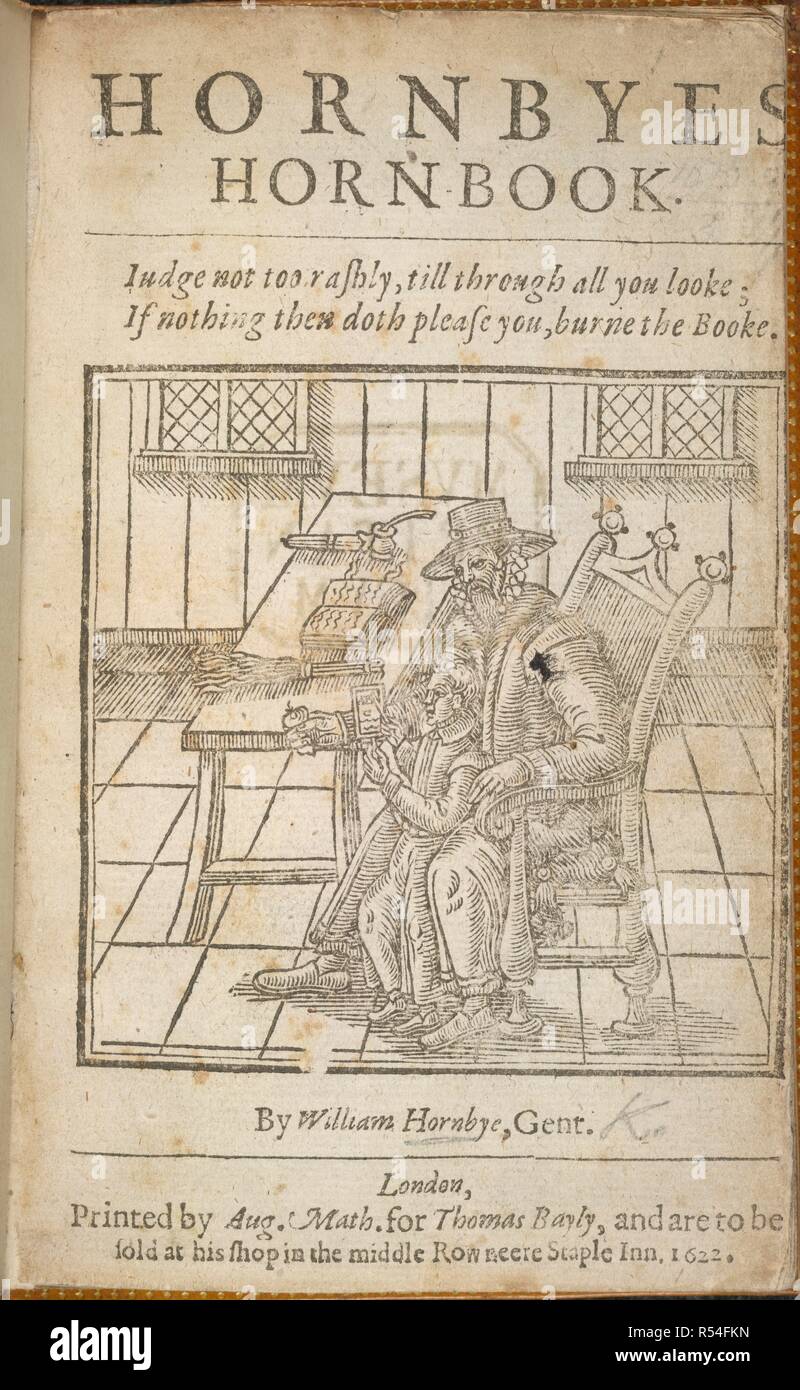 HORNBYES
HORNBOOK.
Iudge not too raſhly, till through all you looke;
If nothing then doth pleaſe you, burne the Booke.
By William Hornbye, Gent. K.
London,
Printed by Aug. Math. for Thomas Bayly, and are to be
ſold at his ſhop in the middle Row neere Staple Inn, 1622.
alamy
Image ID: R54FKN
www.alamy.com